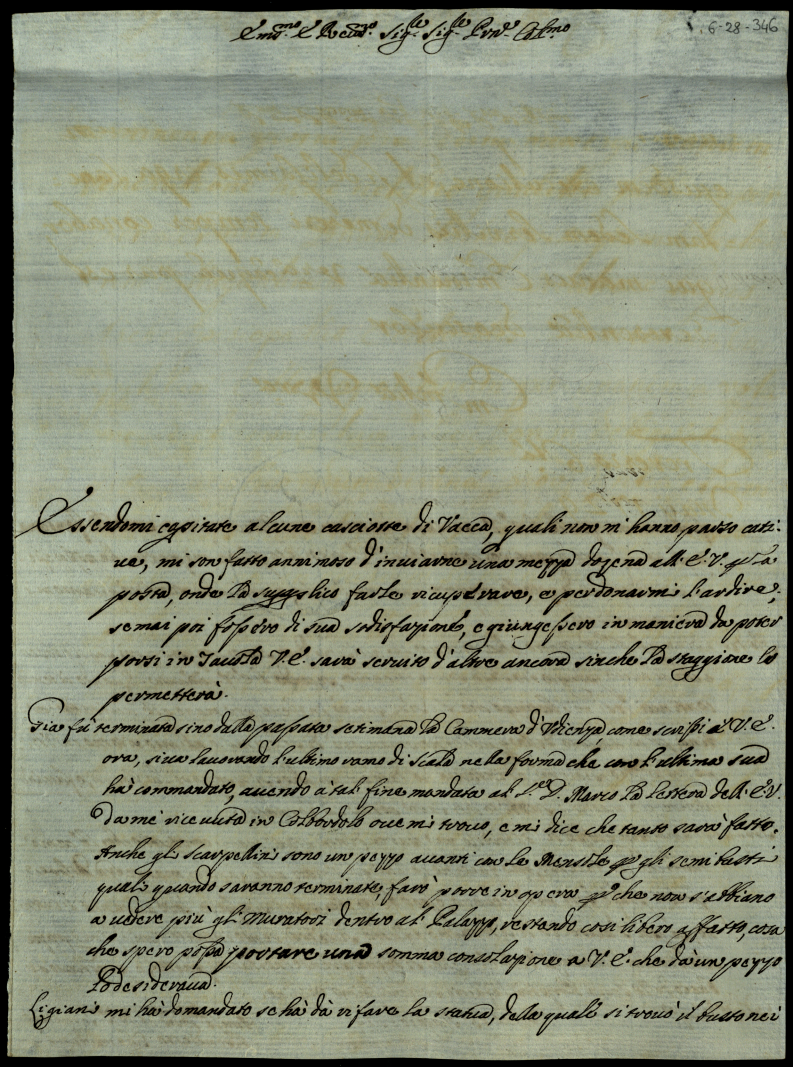 6-28-346
Em.mo e Rev.mo Sig.re Sig.re Pron.e Col.mo
Essendomi capitate alcune casciotte di Vacca, quali non mi hanno parso cati-
ue, mi son fatto annimoso d'inuiarne una mezza dozena all'E.V. p la
posta, onde la supplico farle ricuperare, e perdonarmi l'ardire;
se mai poi fossero di sua sodisfazione, e giungessero in maniera da poter
porsi in Tauola V.E. sarà seruito d'altre ancora sinche la staggione lo
permetterà.
Gia fù terminata sino dalla passata setimana la Cammera d'Vdienza, come scrissi à V.E.
ora, si ua lauorando l'ultimo ramo di scala nella forma che con l'ultima sua
hà commandato, auendo à tal fine mandata al S.r D. Marco la lettera dell'E.V.
da me riceuuta in Colbordolo oue mi trouo, e mi dice che tanto sarà fatto.
Anche gli scarpellini sono un pezzo auanti con le Mensole p gli semibusti
quali quando saranno terminate, farò porre in opera p che non s'abbiano
a uedere più gli muratori dentro al Palazzo, restando cosi libero affatto, cosa
che spero possa portare una somma consolazione a V.E. che da un pezzo
lo desideraua.
Ligiani mi hà domandato se hà dà rifare la statua, della quale si trouò il busto nei